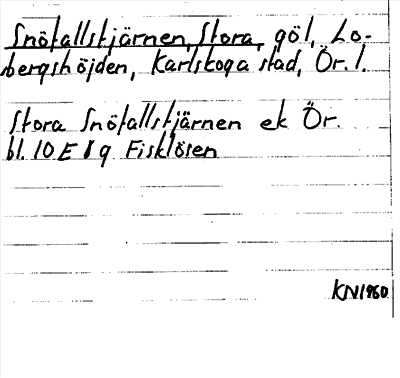 Snötallstjärnen, Stora, göl, Lo-
bergshöjden, Karlskoga stad, Ör. l.
Stora Snötallstjärnen ek Ör.
bl. 10 E 8 g Fisklösen
KN1960